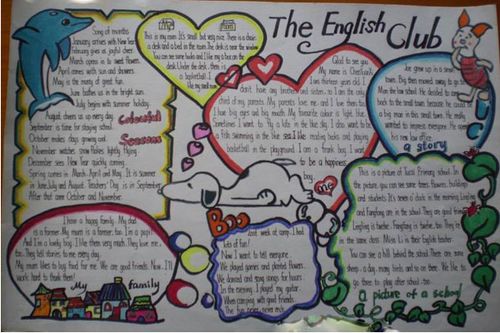 The English Club
Song of months
January arrives with New Year
February gives us joyful cheer.
March opens in to sweet flowers.
April comes with sun and showers
May is the merry of
June bathes us in the bright sun.
July begins with summer holiday.
August cheers us up every day.
September is time for starting school.
October makes days growing cool.
November watches snow flakes lightly flying
December sees New Year quickly coming.
Spring comes in March, April and May. It is summer
in June, July and August. Teachers' Day is in September.
After that come October and November.
Colourful
Seasons
This is my room. It's small but very nice. There is a chair,
a desk and a bed in the room. The desk is near the window.
You can see some books and
Under the desk, there is
a basketball. I
like my small room.
Glad to see you.
My name is
I am thirteen years old. I
don't have any brother and sister, so I am the only
child of my parents. My parents love me, and I love them too.
I has big ears and big mouth. My favourite colour is light blue.
Sometimes I want to fly a kite in the blue sky, I also want to be
a fish swimming in the blue sea. I like reading books and playing
basketball in the playground. I am a frank boy. I want
to be a happiness
boy.
me
Joe grew up in a small
town. Big then moved away to go to
the law school. He decided to
back to the small town because he could
a big man in this small town. He really
wanted to impress everyone. He opened
his new law office.
a story
I have a happy family. My dad
is a farmer. My mum is a farmer, too. I'm a pupil.
And I'm a lovely boy. I like them very much. They love me,
too. They tell stories to me every day.
My mum likes to buy food for me. We are good friends. Now, I'll
work hard to thank them!
My family
Boo
Last week at camp, I had
lots of fun!
Now I want to tell everyone
We played games and planted flowers.
We danced and sang songs for hours.
In the evening, I played my guitar.
When camping with good friends.
The fun never, never ends.
This is a picture of primary school. In
the picture, you can see some trees, flowers, buildings
and students. It's seven o'clock in the morning. Lingling
and Fangfang are in the school. They are good friends.
Lingling is twelve. Fangfang is twelve, too. They are in
the same class. Miss Li is their English teacher.
You can see a hill behind the school. There are some
sheep, a dog, many birds and so on there. We like to
go there to play after school
a picture of a school